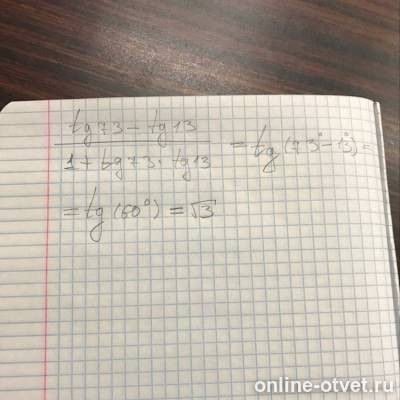 tg73 - tg13
1 + tg73 · tg13
= tg(73° - 13°) =
= tg(60°) = √3
online-otvet.ru